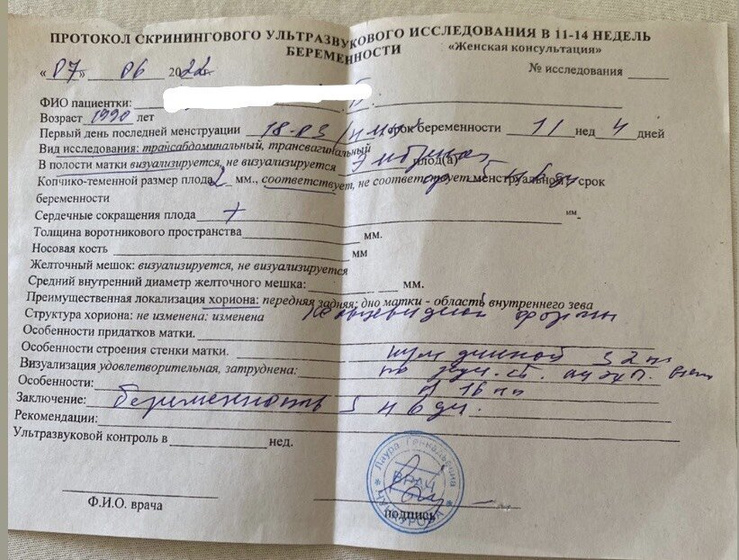 ПРОТОКОЛ СКРИНИНГОВОГО УЛЬТРАЗВУКОВОГО ИССЛЕДОВАНИЯ В 11-14 НЕДЕЛЬ
БЕРЕМЕННОСТИ «Женская консультация»
«07» 06 2022 № исследования
ФИО пациентки:
Возраст 1990 лет
Первый день последней менструации 18.03 срок беременности 11 нед 4 дней
Вид исследования: трансабдоминальный, трансвагинальный
В полости матки визуализируется, не визуализируется плод(а)
Копчико-теменной размер плода 2 мм., соответствует, не соответствует менструальному срок
беременности
Сердечные сокращения плода +
Толщина воротникового пространства мм.
Носовая кость мм
Желточный мешок: визуализируется, не визуализируется
Средний внутренний диаметр желточного мешка: мм.
Преимущественная локализация хориона: передняя задняя; дно матки - область внутреннего зева
Структура хориона: не изменена: изменена формы
Особенности придатков матки.
Особенности строения стенки матки.
Визуализация удовлетворительная, затруднена:
Особенности:
Заключение: беременность 5 н 6 дн.
Рекомендации:
Ультразвуковой контроль в нед.
Ф.И.О. врача
подпись
ВРАЧ